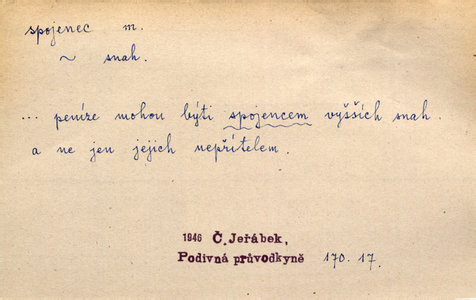 spojenec m.
~ snah.
... peníze mohou býti spojencem vyšších snah
a ne jen jejich nepřítelem.
1946 Č. Jeřábek,
Podivná průvodkyně 170.17.